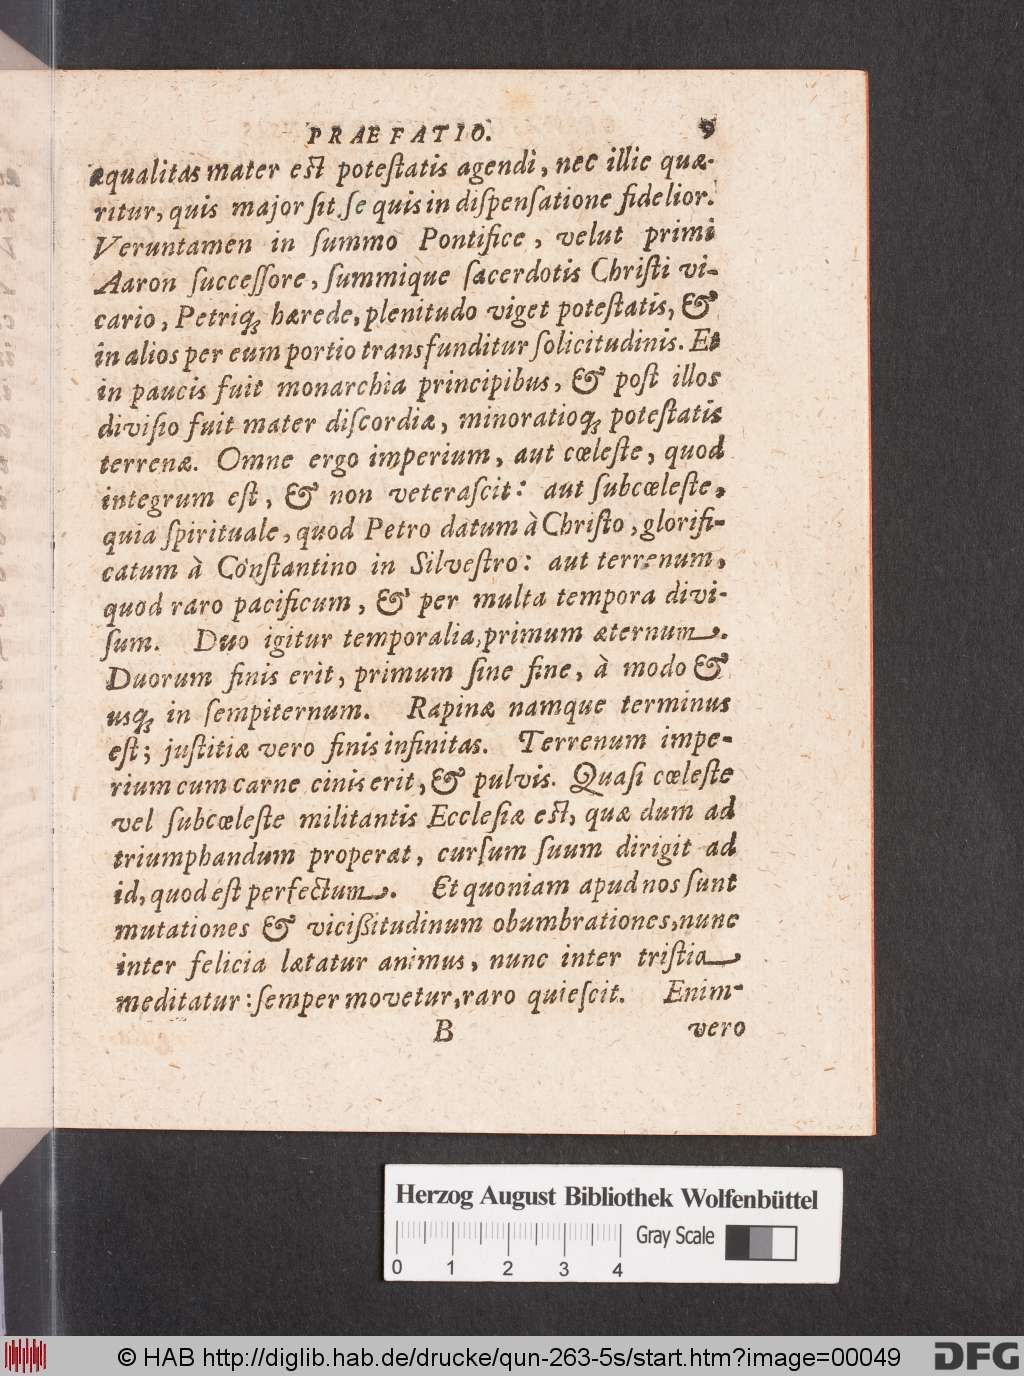 PRAEFATIO. 9
æqualitas mater eſt poteſtatis agendi, nec illic quæ-
ritur, quis major ſit, ſe quis in diſpenſatione fidelior.
Veruntamen in ſummo Pontifice, velut primi
Aaron ſucceſſore, ſummique ſacerdotis Chriſti vi-
cario, Petriq́ꝫ hærede, plenitudo viget poteſtatis, &
in alios per eum portio transfunditur ſolicitudinis. Et
in paucis fuit monarchia principibus, & poſt illos
diviſio fuit mater diſcordiæ, minoratioq́ꝫ poteſtatis
terrenæ. Omne ergo imperium, aut cœleſte, quod
integrum eſt, & non veteraſcit: aut ſubcœleſte,
quia ſpirituale, quod Petro datum à Chriſto, glorifi-
catum à Conſtantino in Silveſtro: aut terrenum,
quod raro pacificum, & per multa tempora divi-
ſum. Duo igitur temporalia, primum æternum.
Duorum finis erit, primum ſine fine, à modo &
usq́ꝫ in ſempiternum. Rapinæ namque terminus
eſt; juſtitiæ vero finis infinitas. Terrenum impe-
rium cum carne cinis erit, & pulvis. Quaſi cœleſte
vel ſubcœleſte militantis Eccleſiæ eſt, quæ dum ad
triumphandum properat, curſum ſuum dirigit ad
id, quod eſt perfectum. Et quoniam apud nos ſunt
mutationes & viciſſitudinum obumbrationes, nunc
inter felicia lætatur animus, nunc inter triſtia
meditatur: ſemper movetur, raro quieſcit. Enim-
B vero
Herzog August Bibliothek Wolfenbüttel
Gray Scale
0 1 2 3 4
© HAB http://diglib.hab.de/drucke/qun-263-5s/start.htm?image=00049
DFG